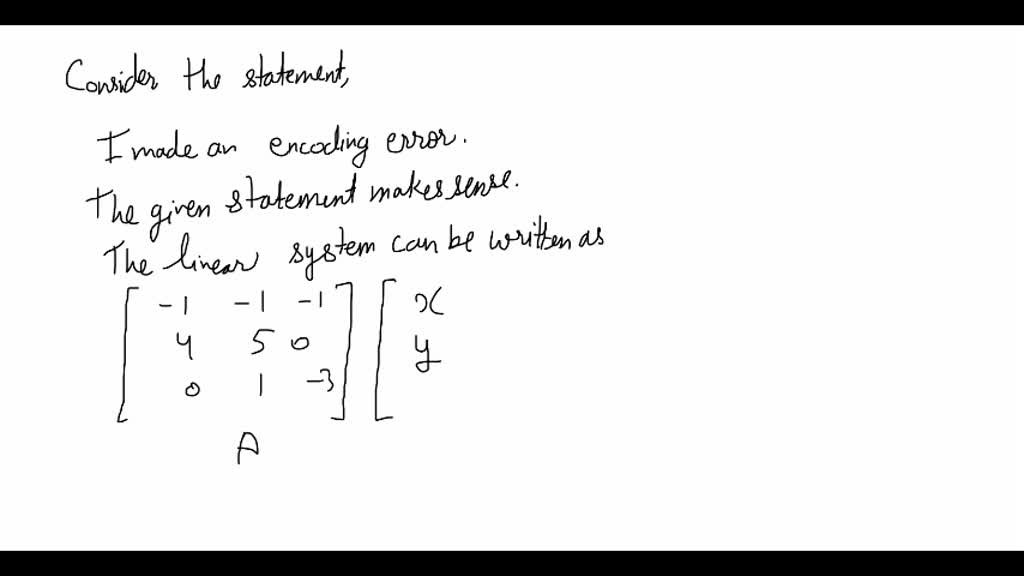 Consider the statement,
I made an encoding error.
The given statement makes sense.
The linear system can be written as
[ -1 -1 -1 ] [ x
4 5 0 y
0 1 -3
A